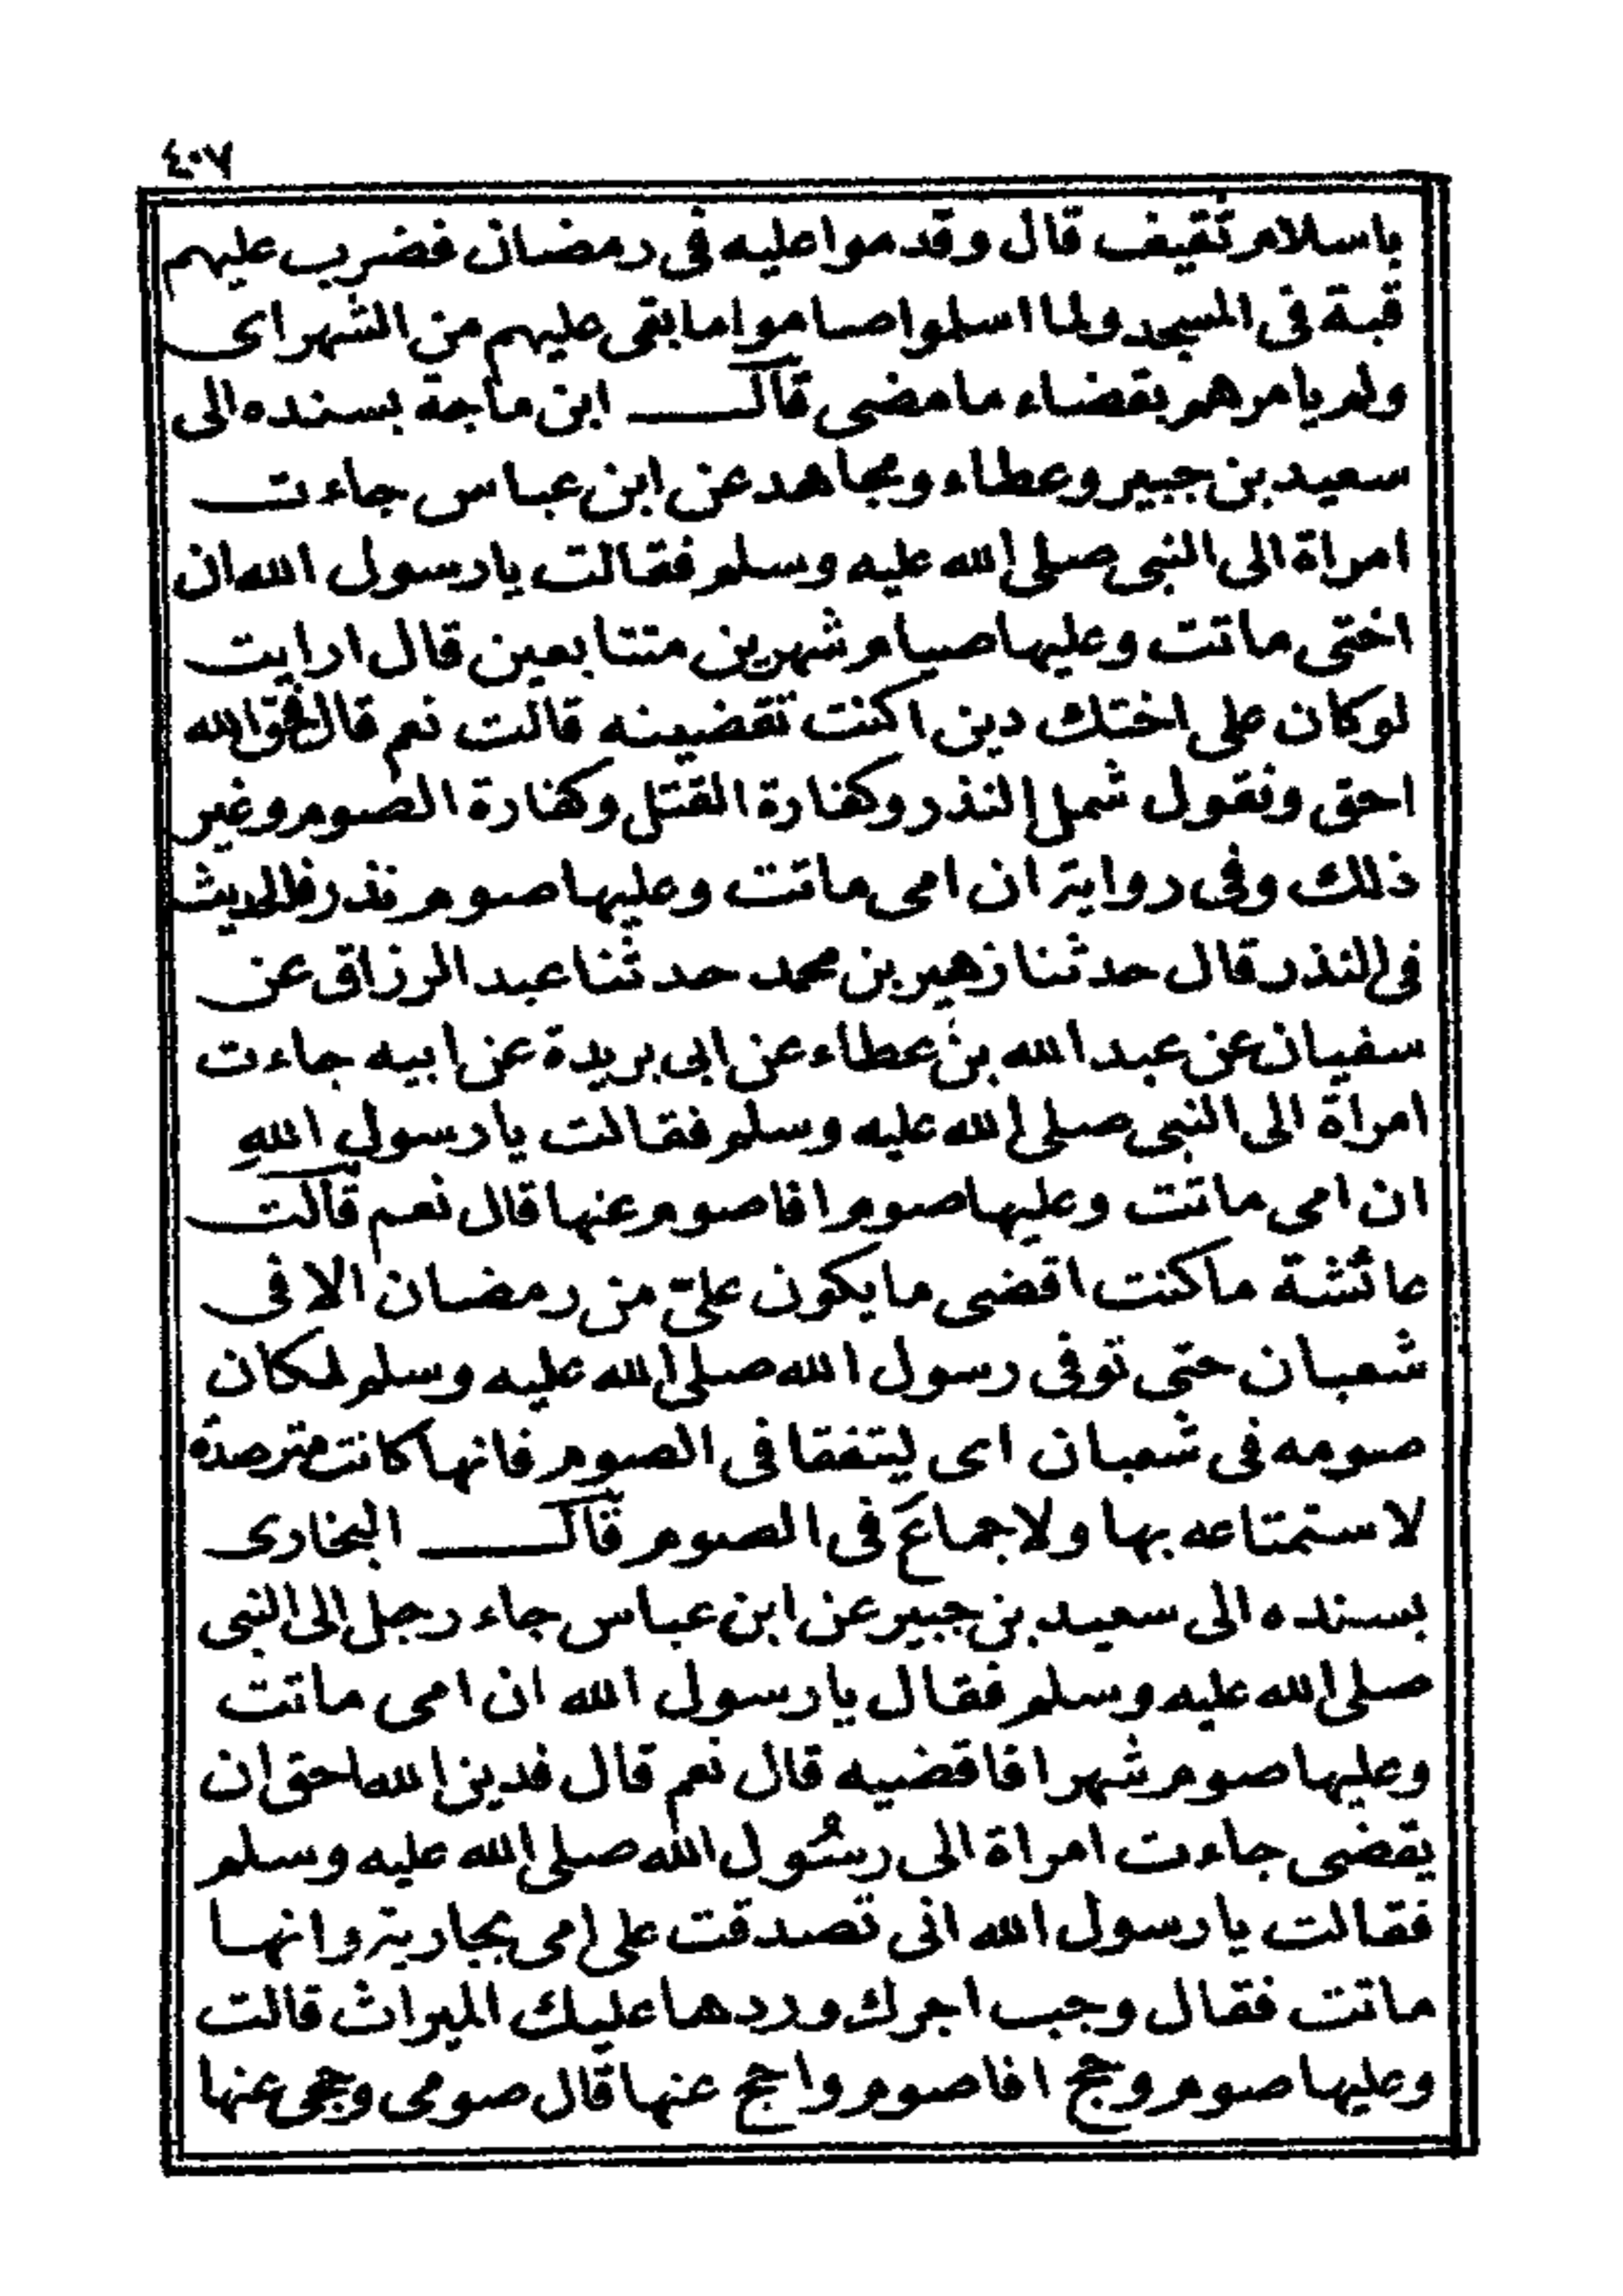 ٤٠٧
باسلام ثقيف قال وقدموا عليه فى رمضان فضرب عليهم
قبة فى المسجد ولما اسلموا صاموا ما بقى عليهم من الشهر اى
ولم يامرهم بقضاء ما مضى قال ابن ماجة بسنده الى
سعيد بن جبير وعطاء ومجاهد عن ابن عباس جاءت
امراة الى النبى صلى الله عليه وسلم فقالت يا رسول الله ان
اختى ماتت وعليها صيام شهرين متتابعين قال ارايت
لو كان على اختك دين اكنت تقضينه قالت نعم قال فحق الله
احق ونقول شمل النذر وكفارة القتل وكفارة الصوم وغير
ذلك وفى رواية ان امى ماتت وعليها صوم نذر فالحديث
فى النذر قال حدثنا زهير بن محمد حدثنا عبد الرزاق عن
سفيان عن عبد الله بن عطاء عن ابى بريدة عن ابيه جاءت
امراة الى النبى صلى الله عليه وسلم فقالت يا رسول اللهِ
ان امى ماتت وعليها صوم افاصوم عنها قال نعم قالت
عائشة ما كنت اقضى ما يكون علىّ من رمضان الا فى
شعبان حتى توفى رسول الله صلى الله عليه وسلم لمكان
صومه فى شعبان اى ليتفقا فى الصوم فانها كانت مترصدة
لاستمتاعه بها ولا جماعَ فى الصوم قال البخارى
بسنده الى سعيد بن جبير عن ابن عباس جاء رجل الى النبى
صلى الله عليه وسلم فقال يا رسول الله ان امى ماتت
وعليها صوم شهر افاقضيه قال نعم قال فدين الله احق ان
يقضى جاءت امراة الى رسُول الله صلى الله عليه وسلم
فقالت يا رسول الله انى تصدقت على امى بجارية وانها
ماتت فقال وجب اجرك وردها عليك الميراث قالت
وعليها صوم وحج افاصوم واحج عنها قال صومى وحجى عنها